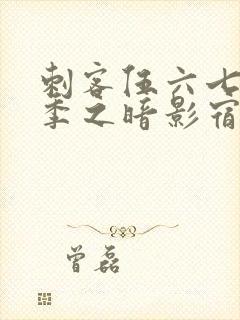 刺客伍六七
季之暗影宿
曾磊